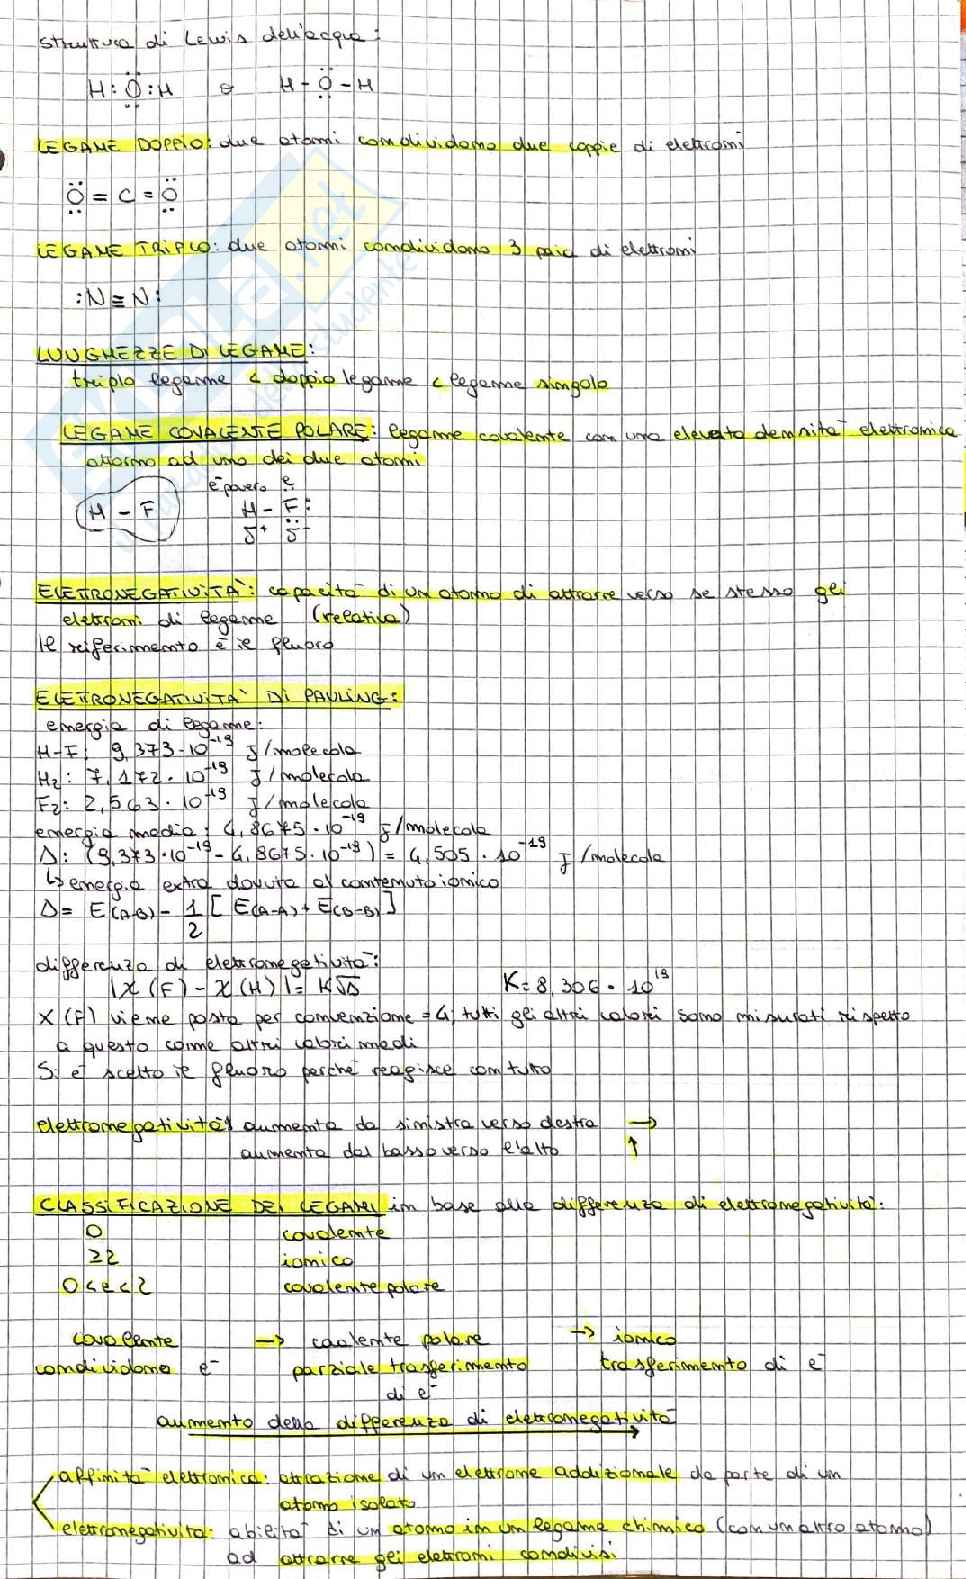 Struttura di Lewis dell'acqua:
H:Ö:H o H-Ö-H
LEGAME DOPPIO: due atomi condividono due coppie di elettroni
Ö=C=Ö
LEGAME TRIPLO: due atomi condividono 3 paia di elettroni
:N≡N:
LUNGHEZZE DI LEGAME:
triplo legame < doppio legame < legame singolo
LEGAME COVALENTE POLARE: legame covalente con una elevata densità elettronica
attorno ad uno dei due atomi
e⁻povero e
H - F H - F:
δ⁺ δ⁻
ELETTRONEGATIVITÀ: capacità di un atomo di attrarre verso se stesso gli
elettroni di legame (relativa)
Il riferimento è il fluoro
ELETTRONEGATIVITÀ DI PAULING:
energia di legame:
H-F: 9,373·10⁻¹⁹ J/molecola
H₂: 7,172·10⁻¹⁹ J/molecola
F₂: 2,563·10⁻¹⁹ J/molecola
energia media: 4,8675·10⁻¹⁹ J/molecola
Δ: (9,373·10⁻¹⁹-4,8675·10⁻¹⁹)=4,505·10⁻¹⁹ J/molecola
↳ energia extra dovuta al contenuto ionico
Δ= E(A-B) - 1/2 [E(A-A)+E(B-B)]
differenza di elettronegatività:
|X(F)-X(H)|=K√Δ K=8,306·10¹⁹
X(F) viene posta per convenzione =4, tutti gli altri valori sono misurati rispetto
a questo come altri valori medi
Si è scelto il fluoro perché reagisce con tutto
elettronegatività: aumenta da sinistra verso destra →
aumenta dal basso verso l'alto ↑
CLASSIFICAZIONE DEI LEGAMI in base alla differenza di elettronegatività:
0 covalente
≥2 ionico
0<e<2 covalente polare
covalente → covalente polare → ionico
condividono e⁻ parziale trasferimento trasferimento di e⁻
di e⁻
aumento della differenza di elettronegatività
affinità elettronica: attrazione di un elettrone addizionale da parte di un
atomo isolato
elettronegatività: abilità di un atomo in un legame chimico (con un altro atomo)
ad attrarre gli elettroni condivisi